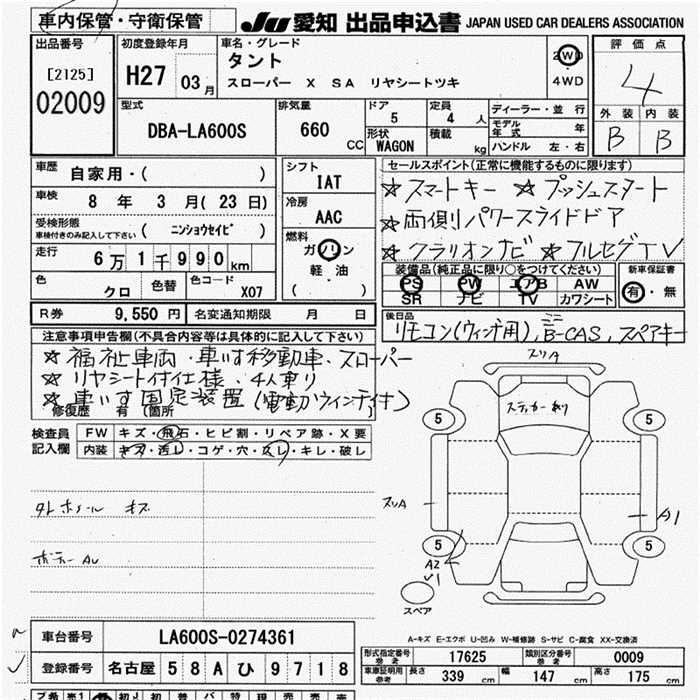 車内保管・守衛保管 JU 愛知 出品申込書 JAPAN USED CAR DEALERS ASSOCIATION
出品番号 初度登録年月 車名・グレード 評価点
[2125] H27 03月 タント 2WD 4
02009 スローパー X SA リヤシートツキ 4WD
型式 排気量 ドア 定員 ディーラー・並行 外装 内装
DBA-LA600S 660 CC 5 4人 モデル年式 年 B B
形状 積載 ハンドル 左・右
WAGON kg
車歴 自家用・( ) シフト セールスポイント(正常に機能するものに限ります)
車検 8年 3月(23日) IAT ☆スマートキー ☆プッシュスタート
受検形態 冷房 ☆両側パワースライドドア
車検付きのみ記入して下さい ( ニンショウセイビ ) AAC ☆クラリオンナビ ☆フルセグTV
走行 6万1千990km 燃料 ガソリン 装備品(純正品に限り○をつけてください) 新車保証書
色 クロ 色替 色コード X07 軽油 ( ) PS PW エアB AW 有・無
SR ナビ TV カワシート
R券 9,550円 名変通知期限 月 日 後日品
リモコン(ウィンチ用), ミニB-CAS, スペアキー
注意事項申告欄(不具合内容等は具体的に記入して下さい)
☆福祉車両・車いす移動車、スローパー
☆リヤシート付仕様、4人乗り
☆車いす固定装置(電動ウィンチ付)
修復歴 有(箇所 )
検査員 FW キズ・飛石・ヒビ割・リペア跡・X要
記入欄 内装 キズ・汚レ・コゲ・穴・スレ・キレ・破レ
スリA
ステッカーあり
5 5
スリA A1
5 5
A2
√1
スペア
ボデー AU
A-キズ E-エクボ U-凹み W-補修跡 S-サビ C-腐食 XX-交換済
車台番号 LA600S-0274361
登録番号 名古屋 58Aひ9718
形式指定番号 参考 17625 類別区分番号 参考 0009
車庫証明用 参考 長さ 339 cm 幅 147 cm 高さ 175 cm